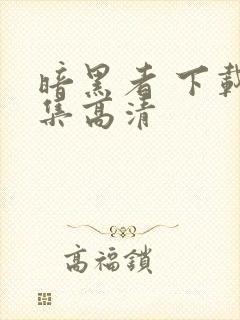 暗黑者 下載
集高清
高福鎖